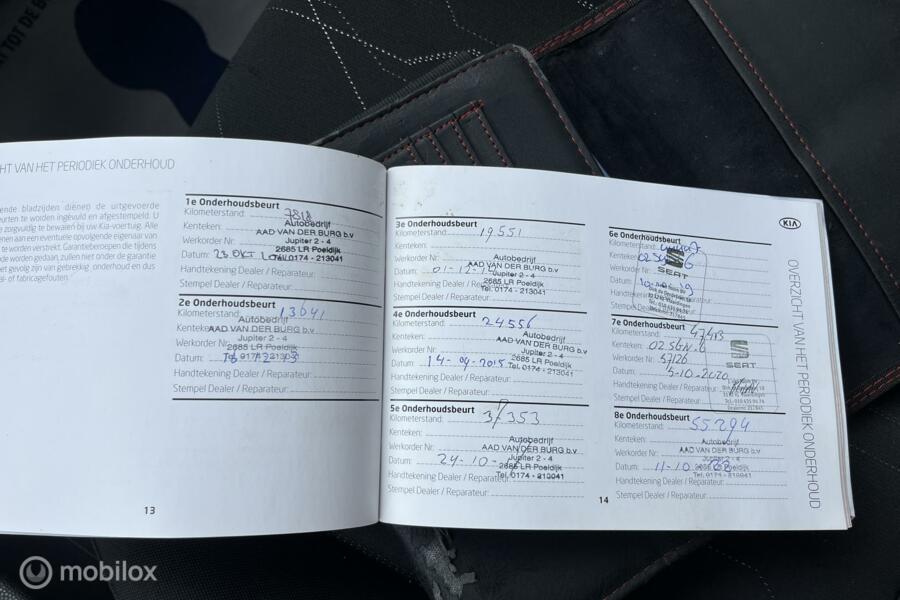 HT VAN HET PERIODIEK ONDERHOUD
ende bladzijden dienen de uitgevoerde
eurten te worden ingevuld en afgestempeld. U
zorgvuldig te bewaren bij uw Kia-voertuig. Alle
enen aan een eventuele opvolgende eigenaar van
te worden verstrekt. Garantieberoepen die tijdens
worden gedaan, zullen niet onder de garantie
et gevolg zijn van gebrekkig onderhoud en dus
- of fabricagefouten.
1e Onderhoudsbeurt
Kilometerstand: 7818
Kenteken: Autobedrijf
AAD VAN DER BURG b.v
Werkorder Nr: Jupiter 2 - 4
2685 LR Poeldijk
Datum: 23 OKT Tel. 0174 - 213041
Handtekening Dealer / Reparateur:
Stempel Dealer / Reparateur:
2e Onderhoudsbeurt
Kilometerstand: 13041
Autobedrijf
Kenteken: AAD VAN DER BURG b.v
Jupiter 2 - 4
Werkorder Nr: 2685 LR Poeldijk
Datum:
Handtekening Dealer / Reparateur:
Stempel Dealer / Reparateur:
13
3e Onderhoudsbeurt
Kilometerstand: 19551
Kenteken:
Autobedrijf
Werkorder Nr: AAD VAN DER BURG b.v
Jupiter 2 - 4
Datum: 01-12-
2685 LR Poeldijk
Handtekening Dealer / Reparateur: Tel. 0174 - 213041
Stempel Dealer / Reparateur:
4e Onderhoudsbeurt
Kilometerstand: 24556
Kenteken: Autobedrijf
AAD VAN DER BURG b.v
Werkorder Nr: Jupiter 2 - 4
Datum: 14-09-2015 2685 LR Poeldijk
Tel. 0174 - 213041
Handtekening Dealer / Reparateur:
Stempel Dealer / Reparateur:
5e Onderhoudsbeurt
Kilometerstand: 37353
Kenteken: Autobedrijf
Werkorder Nr: AAD VAN DER BURG b.v
Jupiter 2 - 4
Datum: 24-10- 2685 LR Poeldijk
Handtekening Dealer / Reparateur: Tel. 0174 - 213041
Stempel Dealer / Reparateur:
14
KIA
6e Onderhoudsbeurt
Kilometerstand:
Kenteken:
SEAT
Werkorder Nr:
Datum:
Handtekening Dealer / Reparateur:
Stempel Dealer / Reparateur:
7e Onderhoudsbeurt
Kilometerstand:
Kenteken:
SEAT
Werkorder Nr: 57126
Datum: 5-10-2020
Handtekening Dealer / Reparateur:
Stempel Dealer / Reparateur:
8e Onderhoudsbeurt
Kilometerstand: 55294
Kenteken: Autobedrijf
Werkorder Nr: AAD VAN DER BURG b.v
Jupiter 2 - 4
Datum: 11-10 2685 LR Poeldijk
Handtekening Dealer / Reparateur: Tel. 0174 - 213041
Stempel Dealer / Reparateur:
OVERZICHT VAN HET PERIODIEK ONDERHOUD
mobilox